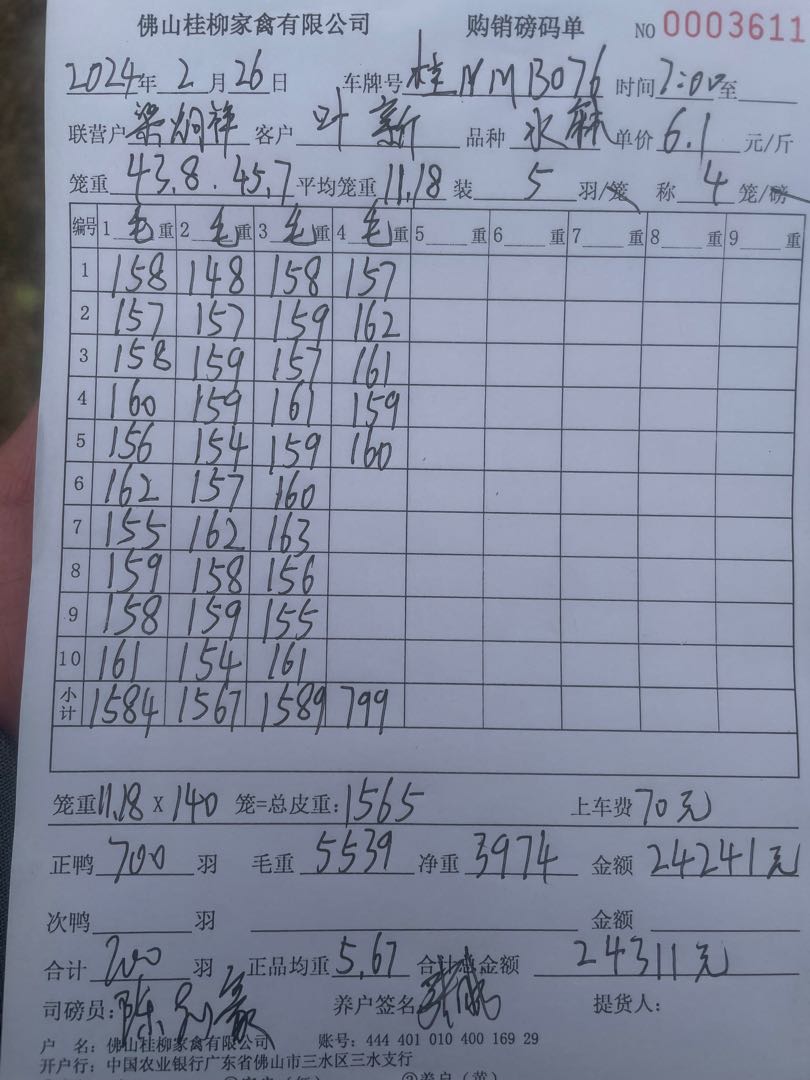 佛山桂柳家禽有限公司 购销磅码单 NO 0003611
2024年 2 月 26 日 车牌号 桂NMB076 时间 7:00 至
联营户 梁炯祥 客户 叶新 品种 水鸭 单价 6.1 元/斤
笼重 43.8 . 45.7 平均笼重 11.18 装 5 羽/笼 称 4 笼/磅
编号 1 毛 重 2 毛 重 3 毛 重 4 毛 重 5 重 6 重 7 重 8 重 9 重
1 158 148 158 157
2 157 157 159 162
3 158 159 157 161
4 160 159 161 159
5 156 154 159 160
6 162 157 160
7 155 162 163
8 159 158 156
9 158 159 155
10 161 154 161
小计 1584 1567 1589 799
笼重 11.18 X 140 笼=总皮重: 1565 上车费 70元
正鸭 700 羽 毛重 5539 净重 3974 金额 24241元
次鸭 羽 金额
合计 700 羽 正品均重 5.67 合计总金额 24311元
司磅员: 陈 养户签名 提货人:
户 名: 佛山桂柳家禽有限公司 账号: 444 401 010 400 169 29
开户行: 中国农业银行广东省佛山市三水区三水支行